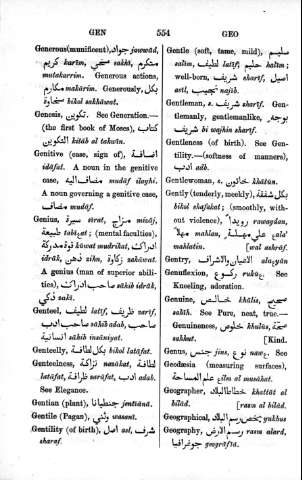 GEN 554 GEO
Generous(munificent), جواد jawwād,
كريم karīm, سخي sakhī, متكرم
mutakarrim. Generous actions,
مكارم makārim. Generously, بكل
سخاوة bikol sakhāwat.
Genesis, تكوين. See Generation.—
(the first book of Moses), كتاب
التكوين kitāb al takwīn.
Genitive (case, sign of), اضافة
idāfat. A noun in the genitive
case, مضاف اليه mudāf ilayhi.
A noun governing a genitive case,
مضاف mudāf.
Genius, سيرة sīrat, مزاج mizāj,
طبيعة tabīat; (mental faculties),
ادراك قوة مدركة kūwat mudrikat,
idrāk, ذهن zihn, زكاوة zakāwat.
A genius (man of superior abili-
ties), صاحب ادراك sāhib idrāk,
ذكي zakī.
Genteel, لطيف latīf, ظريف zarīf,
صاحب ادب sāhib adab, صاحب
انسانية sāhib insāniyat.
Genteelly, بكل لطافة bikol latāfat.
Genteelness, نزاكة nazākat, لطافة
latāfat, ظرافة zarāfat, ادب adab.
See Elegance.
Gentian (plant), جنطيانا jentiāna.
Gentile (Pagan), وثني wasanī.
Gentility (of birth), اصل asl, شرف
sharaf.
Gentle (soft, tame, mild), سليم
salīm, لطيف latīf, حليم halīm;
well-born, شريف sharīf, اصيل
aṣīl, نجيب najīb.
Gentleman, s. شريف sharīf. Gen-
tlemanly, gentlemanlike, بوجه
شريف bi wajhin sharīf.
Gentleness (of birth). See Gen-
tility.—(softness of manners),
ادب adb.
Gentlewoman, s. خاتون khātūn.
Gently (tenderly, meekly), بكل شفقة
bikol shafakat; (smoothly, with-
out violence), رويدا rawaydan,
مهلا mahlan, على مهلة ala'
mahlatin. [wal ashrāf.
Gentry, الاعيان والاشراف alaayān
Genuflexion, ركوع rukoo. See
Kneeling, adoration.
Genuine, خالص khālis, صحيح
sahīh. See Pure, neat, true.—
Genuineness, خلوص khulūs, صحة
sahhat. [Kind.
Genus, جنس jins, نوع naw. See
Geodæsia (measuring surfaces),
علم المساحة elm al musāhat.
Geographer, خطاط البلاد khattāt al
bilād. [rasn al bilād.
Geographical, يخص رسم البلاد yukhus
Geography, رسم الارض rasm alard,
جوغرافيا geogrāfia.